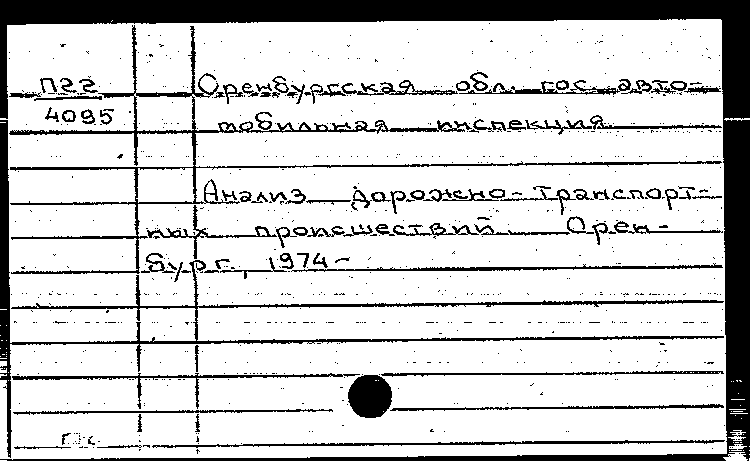 П22
4095
Оренбургская обл. гос. авто-
мобильная инспекция
Анализ дорожно-транспорт-
ных происшествий. Орен-
бург, 1974-